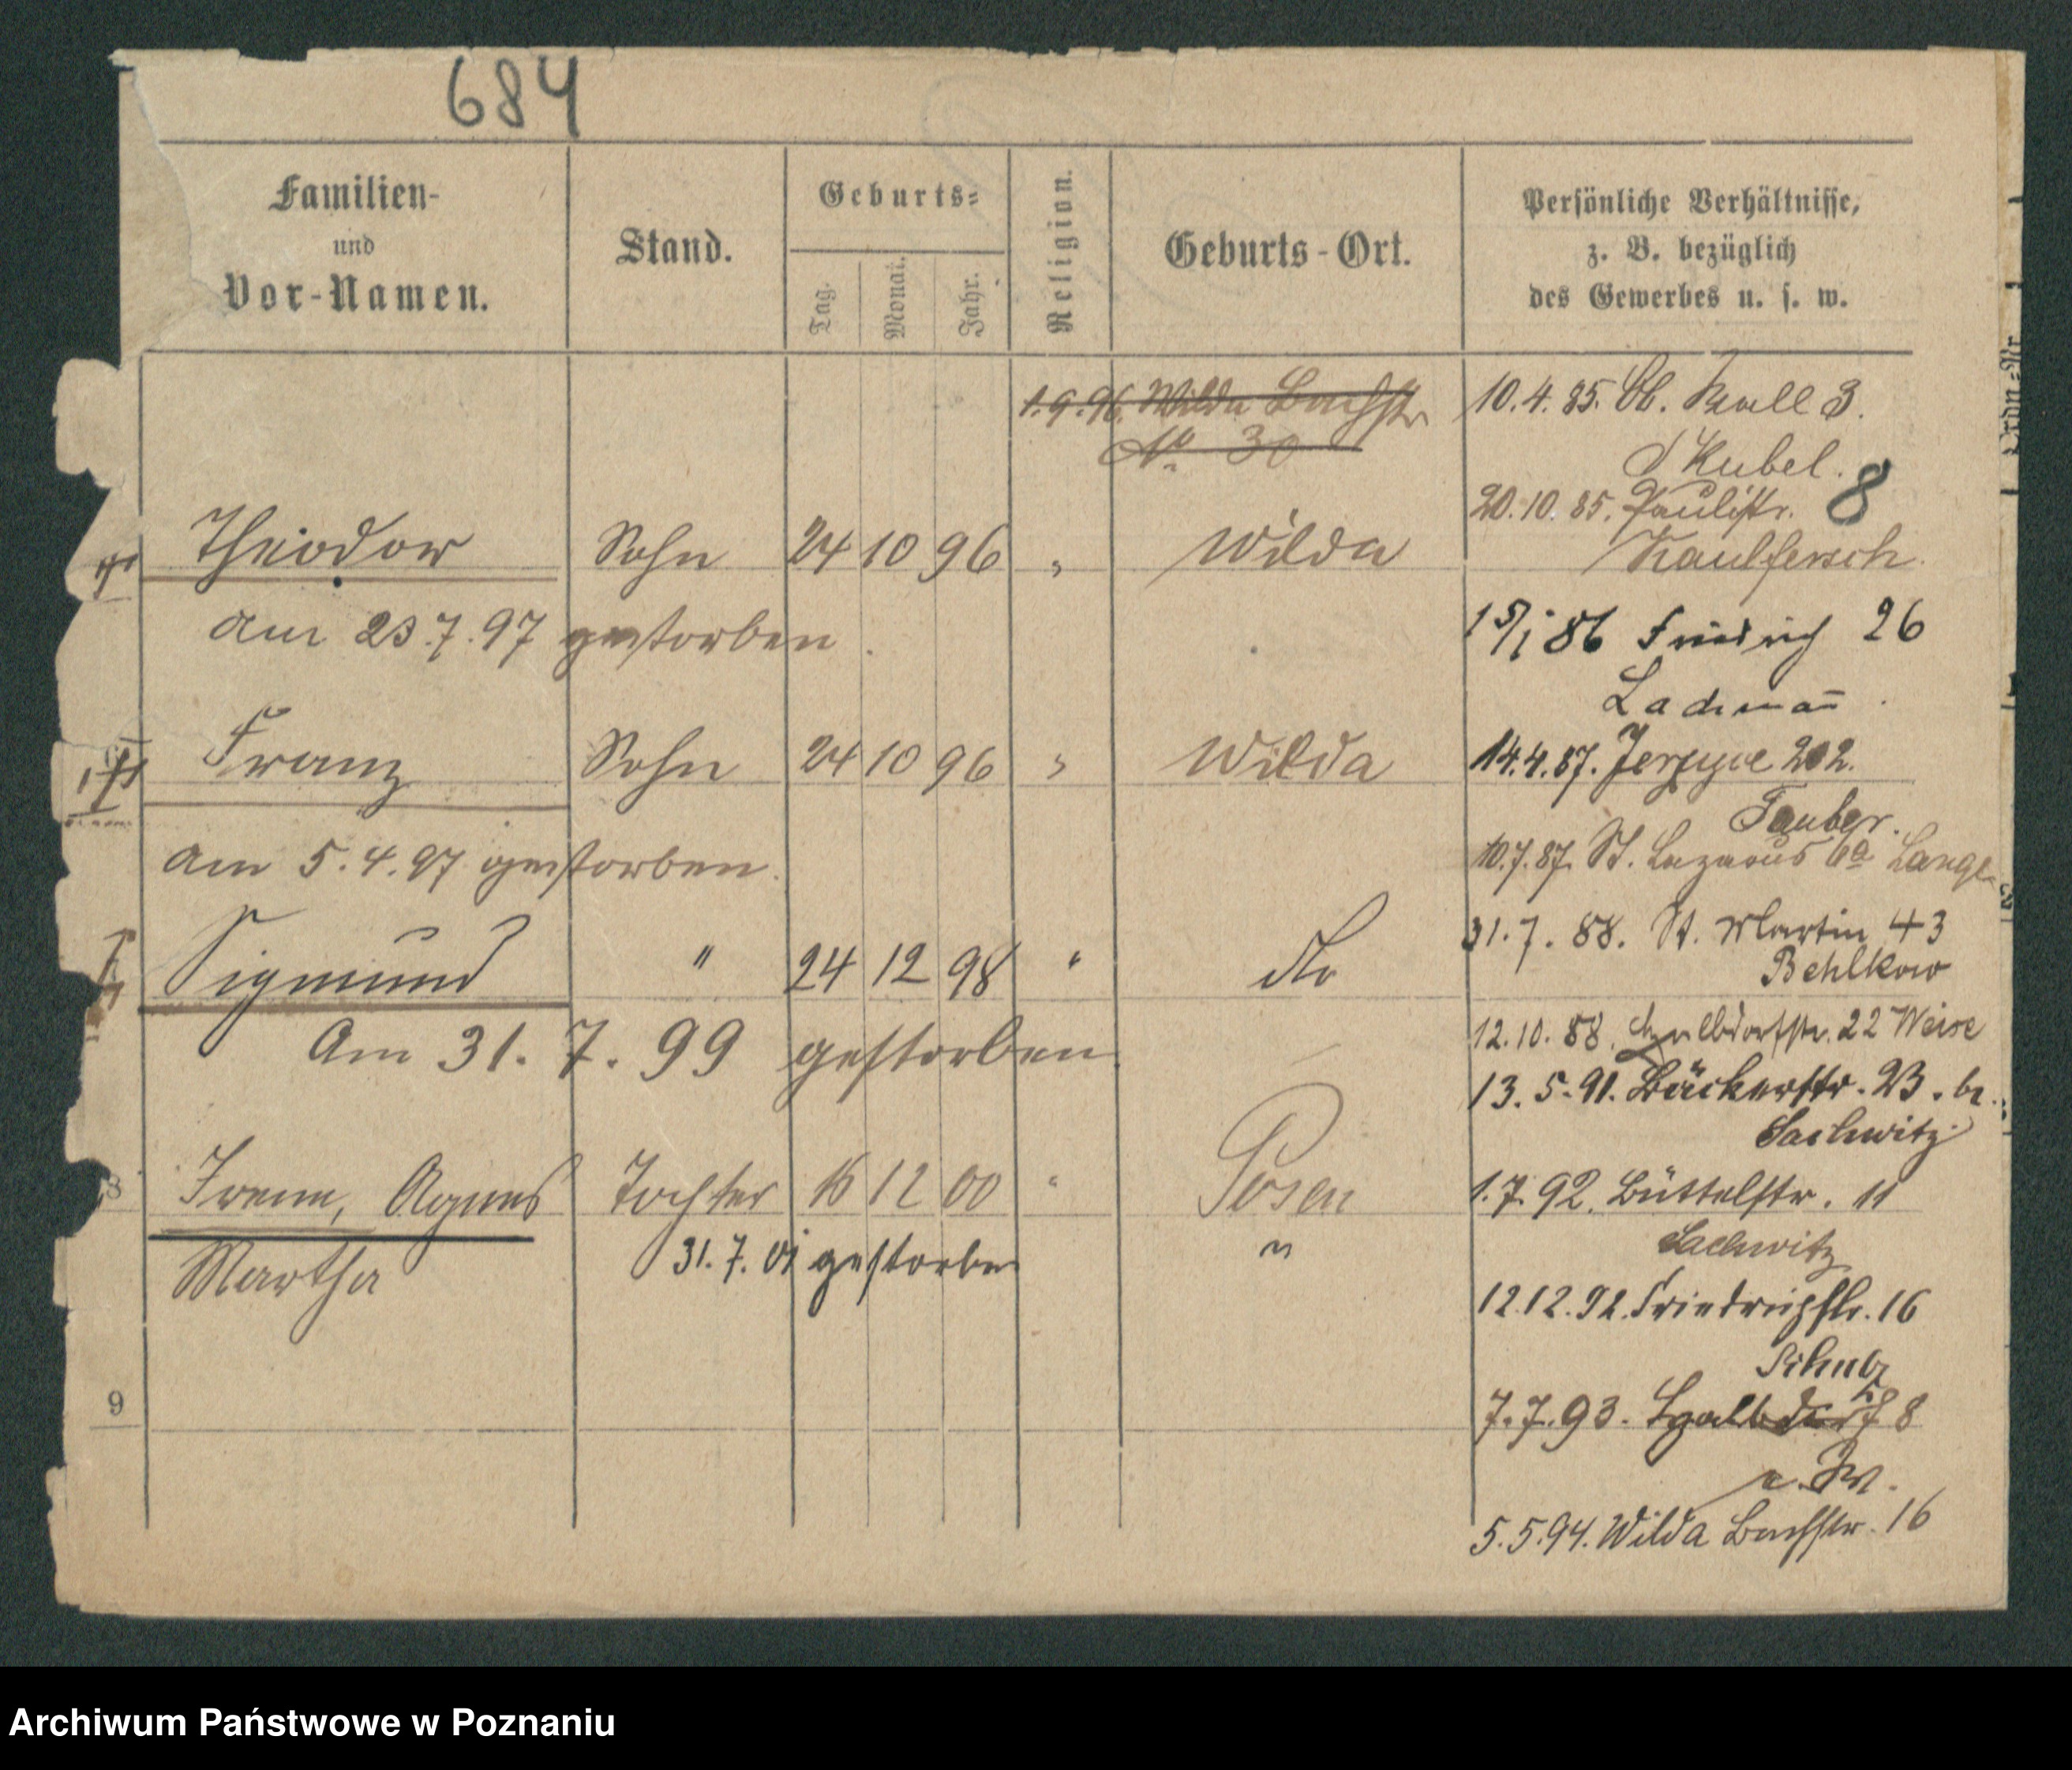 684
Familien-
und
Vor-Namen.
Stand.
Geburts-
Tag.
Monat.
Jahr.
Religion.
Geburts-Ort.
Persönliche Verhältnisse,
z. B. bezüglich
des Gewerbes u. s. w.
1.9.96. Wilda Bachstr
No 30
10.4.85. Ob. Wall 3.
Kubel.
20.10.85. Paulistr. 8
Kaulfersch.
Theodor Sohn 24 10 96 " Wilda
am 23.7.97 gestorben.
15/1 86 Friedrich 26
Lachmann̄
Franz Sohn 24 10 96 " Wilda
14.4.87. Jerzyce 202.
Tauber.
am 5.4.97 gestorben.
10.7.87. St. Lazarus 6a Lange
31.7.88. St. Martin 43
Behlkow
Sigmund " 24 12 98 " do
Am 31.7.99 gestorben
12.10.88. Halbdorfstr. 22 Weise
13.5.91. Bäckerstr. 23. b.
Sachwitz
8 Irene, Agnes Tochter 16 12 00 " Posen
Martha 31.7.01 gestorben "
1.7.92. Büttelstr. 11
Sachwitz
12.12.92. Friedrichstr. 16
Schulz
9
7.7.93. Halbdorf 8
5.5.94. Wilda Bachstr. 16
Archiwum Państwowe w Poznaniu